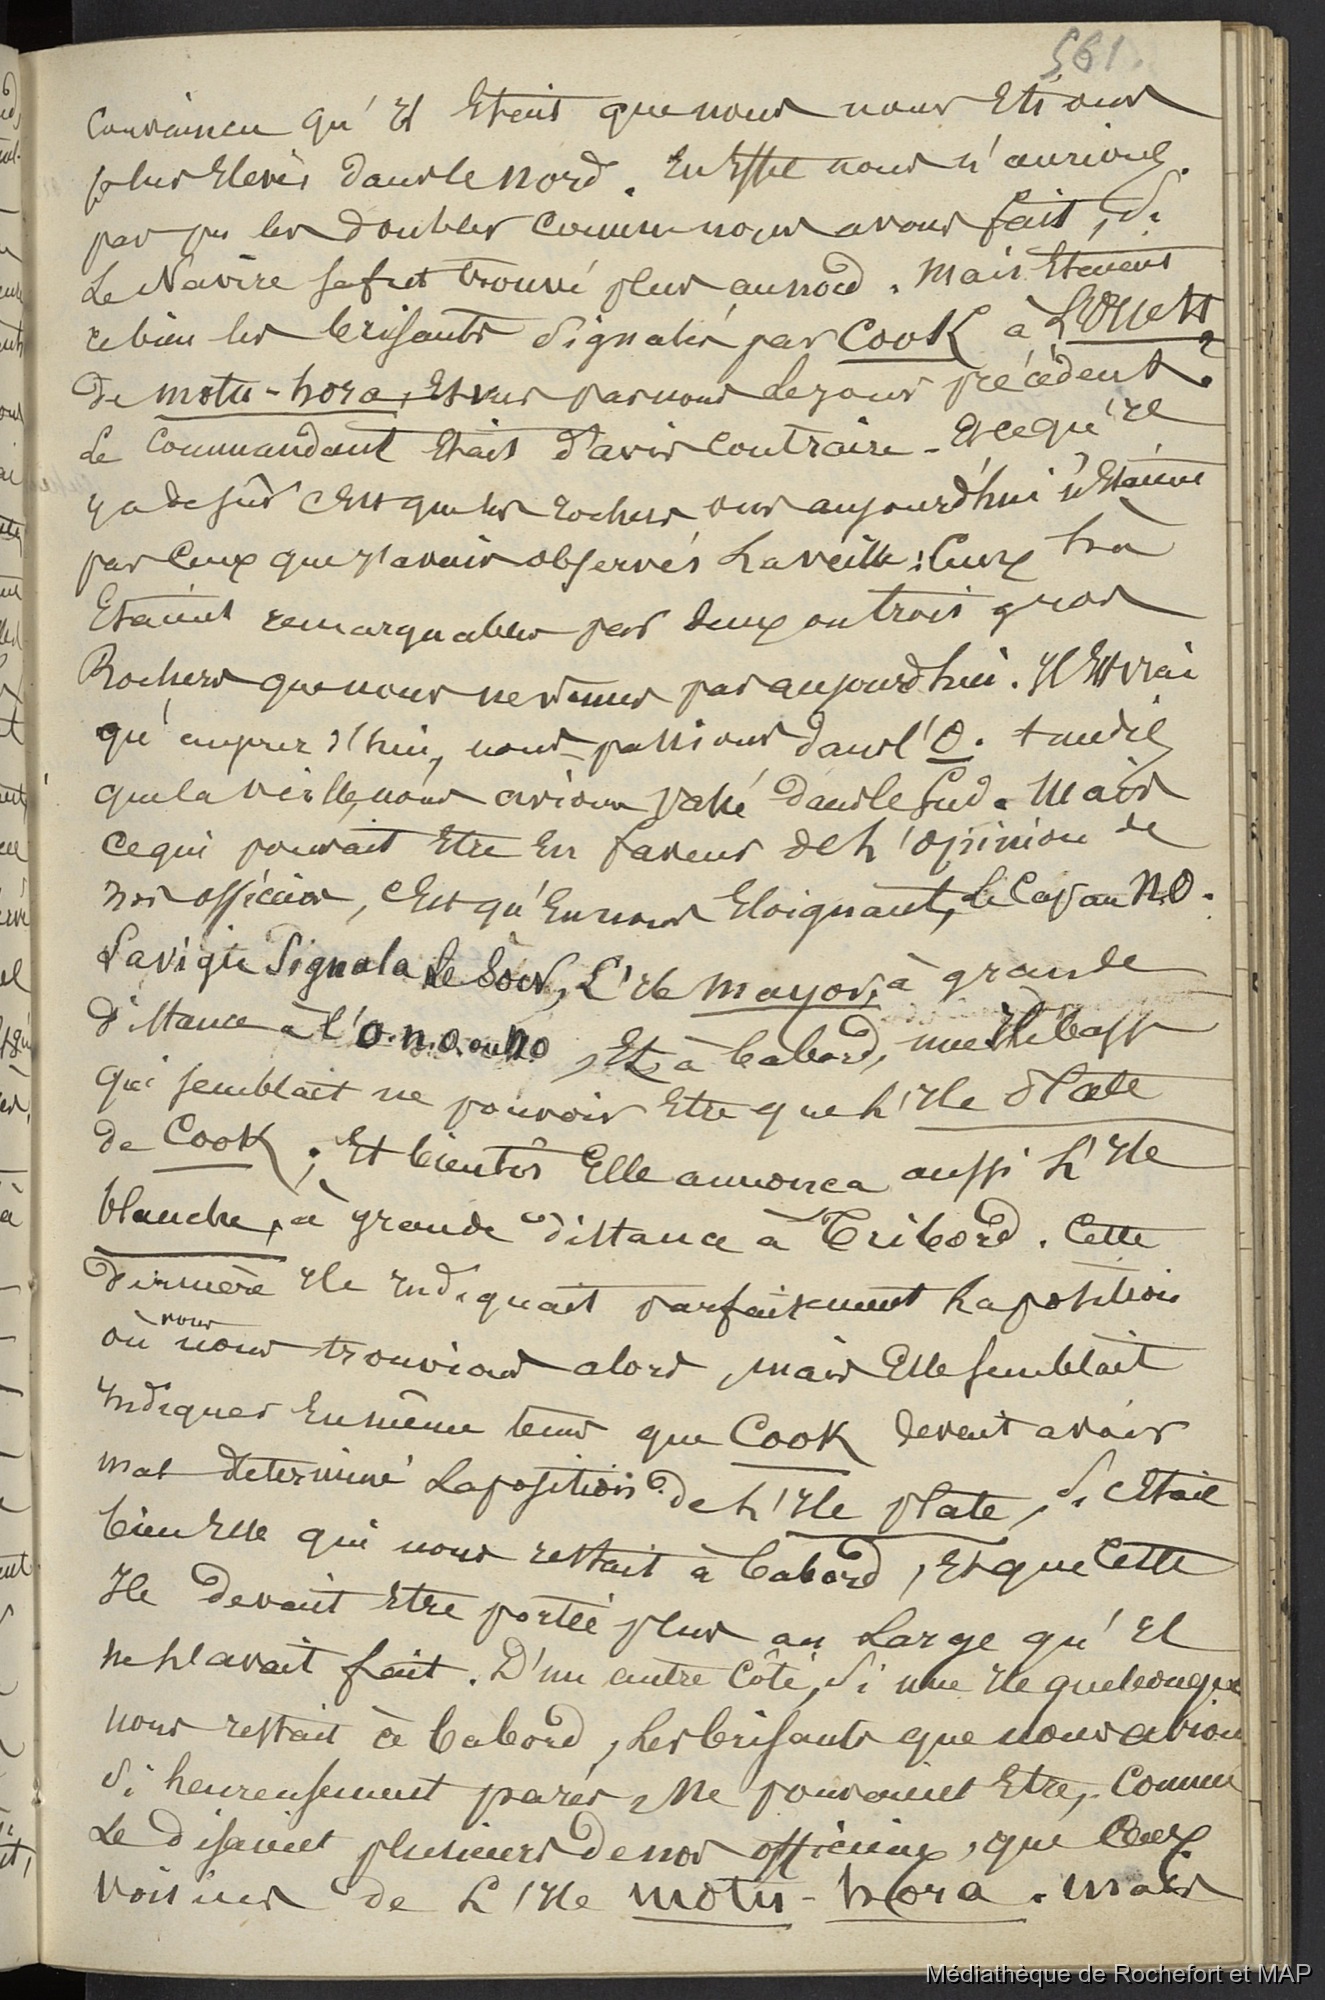 561.
Convaincu qu'il Etait que nous nous Etions
plus Elevés dans le nord. En Effet nous n'aurions
pas pu les doubler comme nous avons fait, si
Le Navire se fut trouvé plus au nord. Mais Etaient
ce bien les brisants signalés par Cook à L'Ouest
De motu-hora, Et vus par nous le jour précédent?
Le Commandant Etait d'avis contraire - Et ce qu'il
y a de sûr c'Est que les rochers vus aujourd'hui n'Etaient
pas Ceux que j'avais observés La veille: Ceux là
Etaient remarquables par deux ou trois gros
Rochers que nous ne vimes pas aujourd'hui. Il Est vrai
qu'aujourd'hui, nous passions dans l'O. tandis
que la veille, nous avions passé dans le Sud. Mais
ce qui pouvait Etre En faveur de L'opinion de
nos officiers, c'Est qu'En nous Eloignant, le Cap au N.O.
La vigie Signala Le Soir, L'ile mayor, à grande
distance à l'O.N.O. ou NO, Et à babord, une Ile basse
qui semblait ne pouvoir Etre que L'Ile Plate
de Cook; Et bientôt Elle annonca aussi L'Ile
blanche, à grande distance à Tribord. Cette
dernière Ile Indiquait parfaitement La position
où nous nous trouvions alors, mais Elle semblait
Indiquer En même tems que Cook devait avoir
mal déterminé La position de L'Ile plate, si c'Etait
bien Elle qui nous restait à babord, Et que Cette
Ile devait Etre portée plus au Large qu'il
ne L'avait fait. D'un autre Côté, si une Ile quelconque
nous restait à babord, Les brisants que nous avions
si heureusement parés ne pouvaient Etre, Comme
Le disaient plusieurs de nos officiers, que Ceux
voisins de L'Ile motu-hora. Mais
Médiathèque de Rochefort et MAP